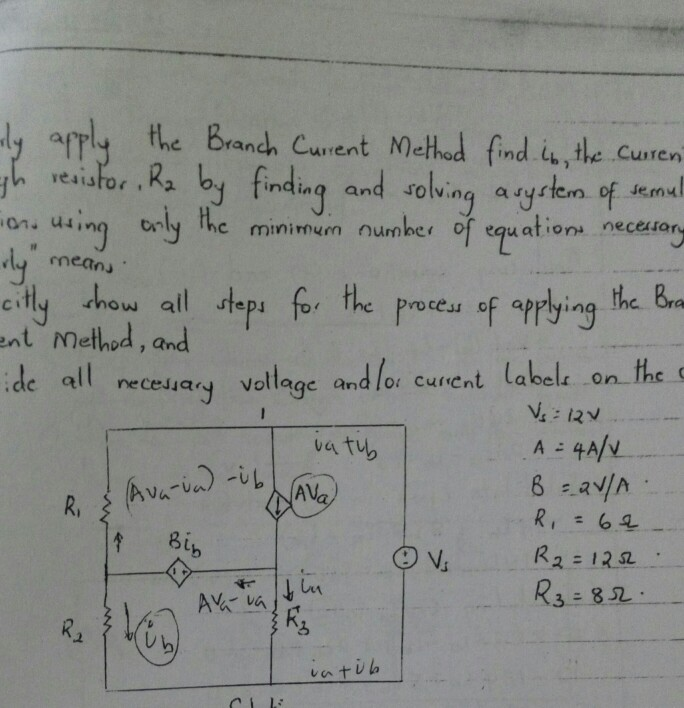 rly apply the Branch Current Method find ib, the Curren
gh resistor, R2 by finding and solving a system of semul
ion. using only the minimum number of equations necessary
rly" means.
citly show all steps for the process of applying the Bra
ent Method, and
ide all necessary voltage and/or current labels on the c
1
Vs = 12V
A = 4A/V
B = 2V/A
R1 = 6Ω
R2 = 12Ω
R3 = 8Ω
ia+ib
(AVa-ia)-ib
AVa
R1
Bib
Vs
AVa-ia
ia
R3
R2
ib
ia+ib